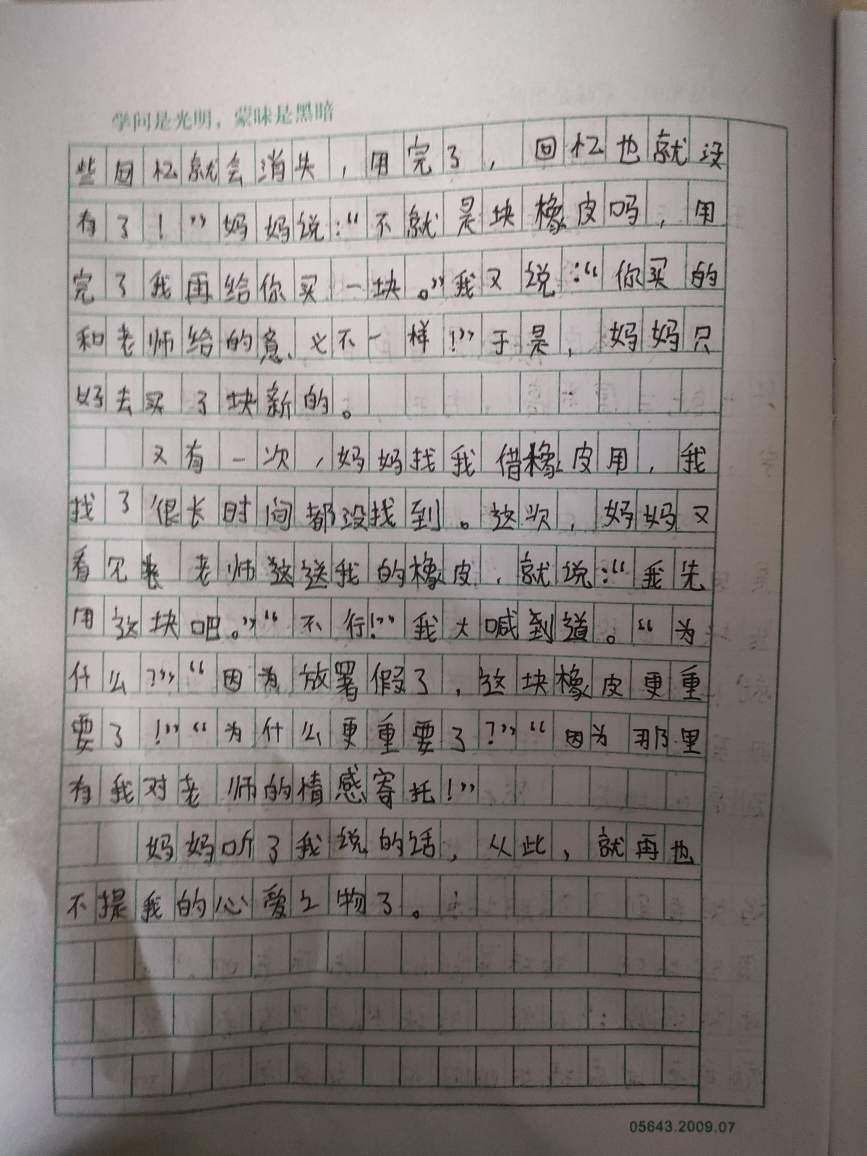 学问是光明，蒙昧是黑暗
些回忆就会消失，用完了，回忆也就没
有了！”妈妈说：“不就是块橡皮吗，用
完了我再给你买一块。”我又说：“你买的
和老师给的意义不一样！”于是，妈妈只
好去买了块新的。
又有一次，妈妈找我借橡皮用，我
找了很长时间都没找到。这次，妈妈又
看见老师送我的橡皮，就说：“我先
用这块吧。”“不行！”我大喊到道。“为
什么？”“因为放署假了，这块橡皮更重
要了！”“为什么更重要了？”“因为那里
有我对老师的情感寄托！”
妈妈听了我说的话，从此，就再也
不提我的心爱之物了。
05643.2009.07